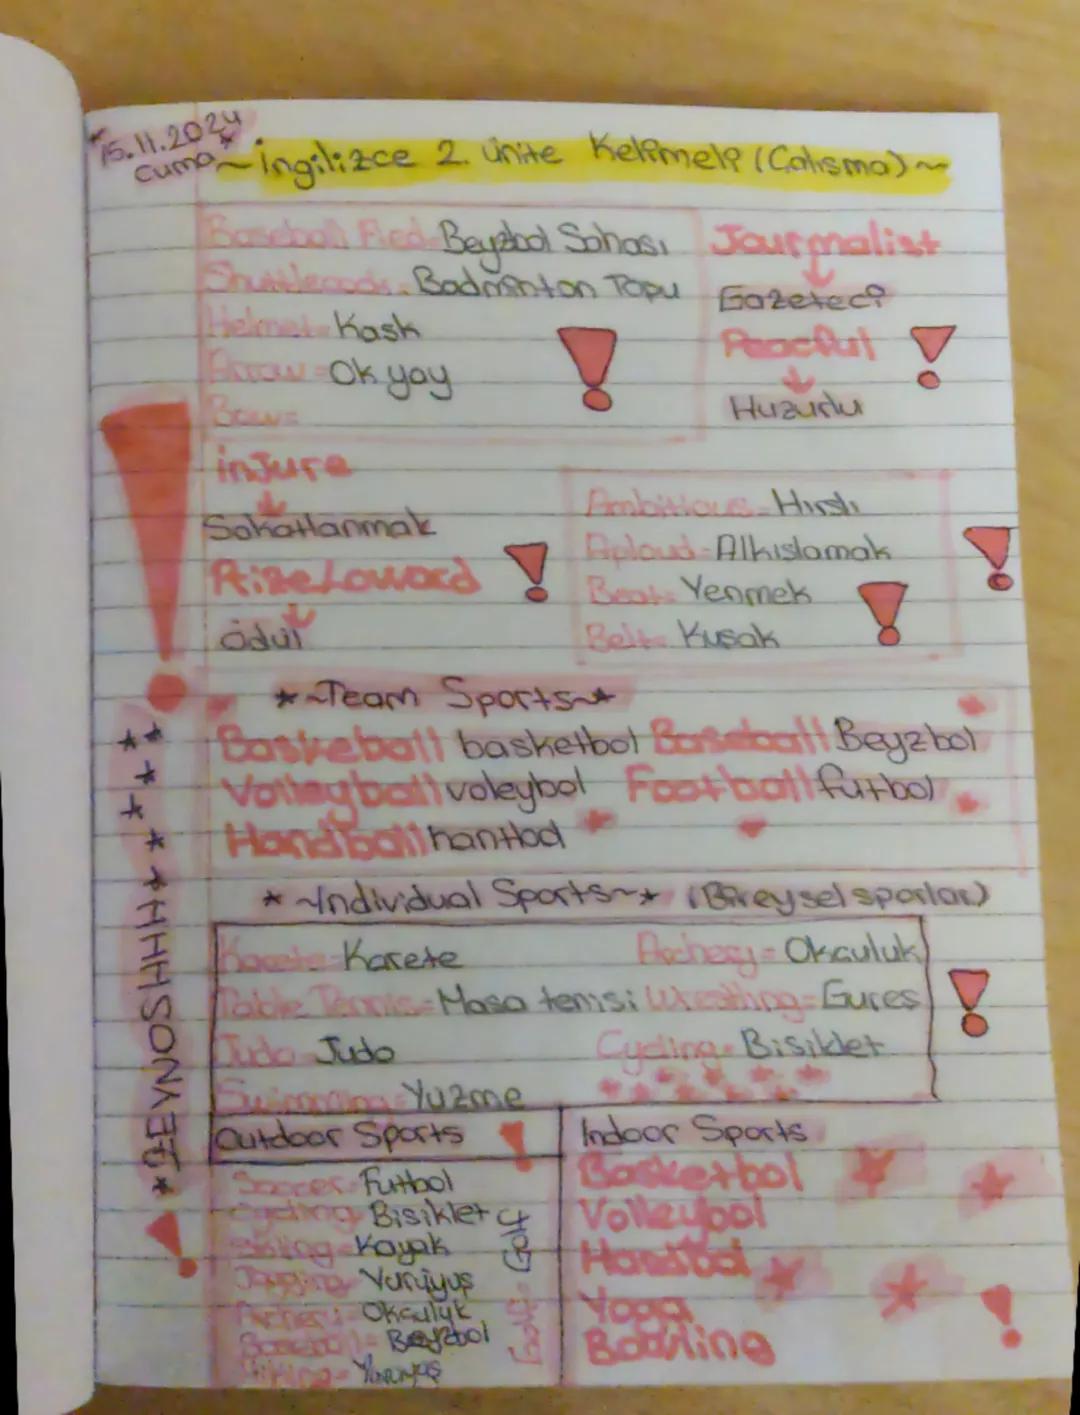 15.11.2024
cuma
~ingilizce 2. ünite Kelimeleri (Calısma)~
Baseball Fied-Beyzbol Sahası
Shuttlecock-Badminton Topu
Helmet-Kask
Arrow-Ok yay
Bow=
Journalist
Gazeteci
Peacful
Huzurlu
injure
Sakatlanmak
ödül
Ambitious-Hırslı
Aploud-Alkıslamak
Beat-Yenmek
Belt-Kuşak
*~Team Sports~*
Baskeball basketbol Baseball Beyzbol
Volleyball voleybol Football futbol
Handball hantbol
*~Individual Sports~* (Bireysel sporlar)
Karete-Karete Archery=Okculuk
Table Tennis=Masa tenisi Wrestling=Gures
Judo-Judo Cycling-Bisiklet
Swimming-Yuzme
Outdoor Sports
Soccer-Futbol
Cycling Bisiklet
Kayak
Jogging Yuruyuş
Archery-Okculuk
Baseball-Beyzbol
Hiking-Yuruyuş
Golf-Golf
Indoor Sports
Basketbol
Volleybol
Handbol
Yoga
Bowling